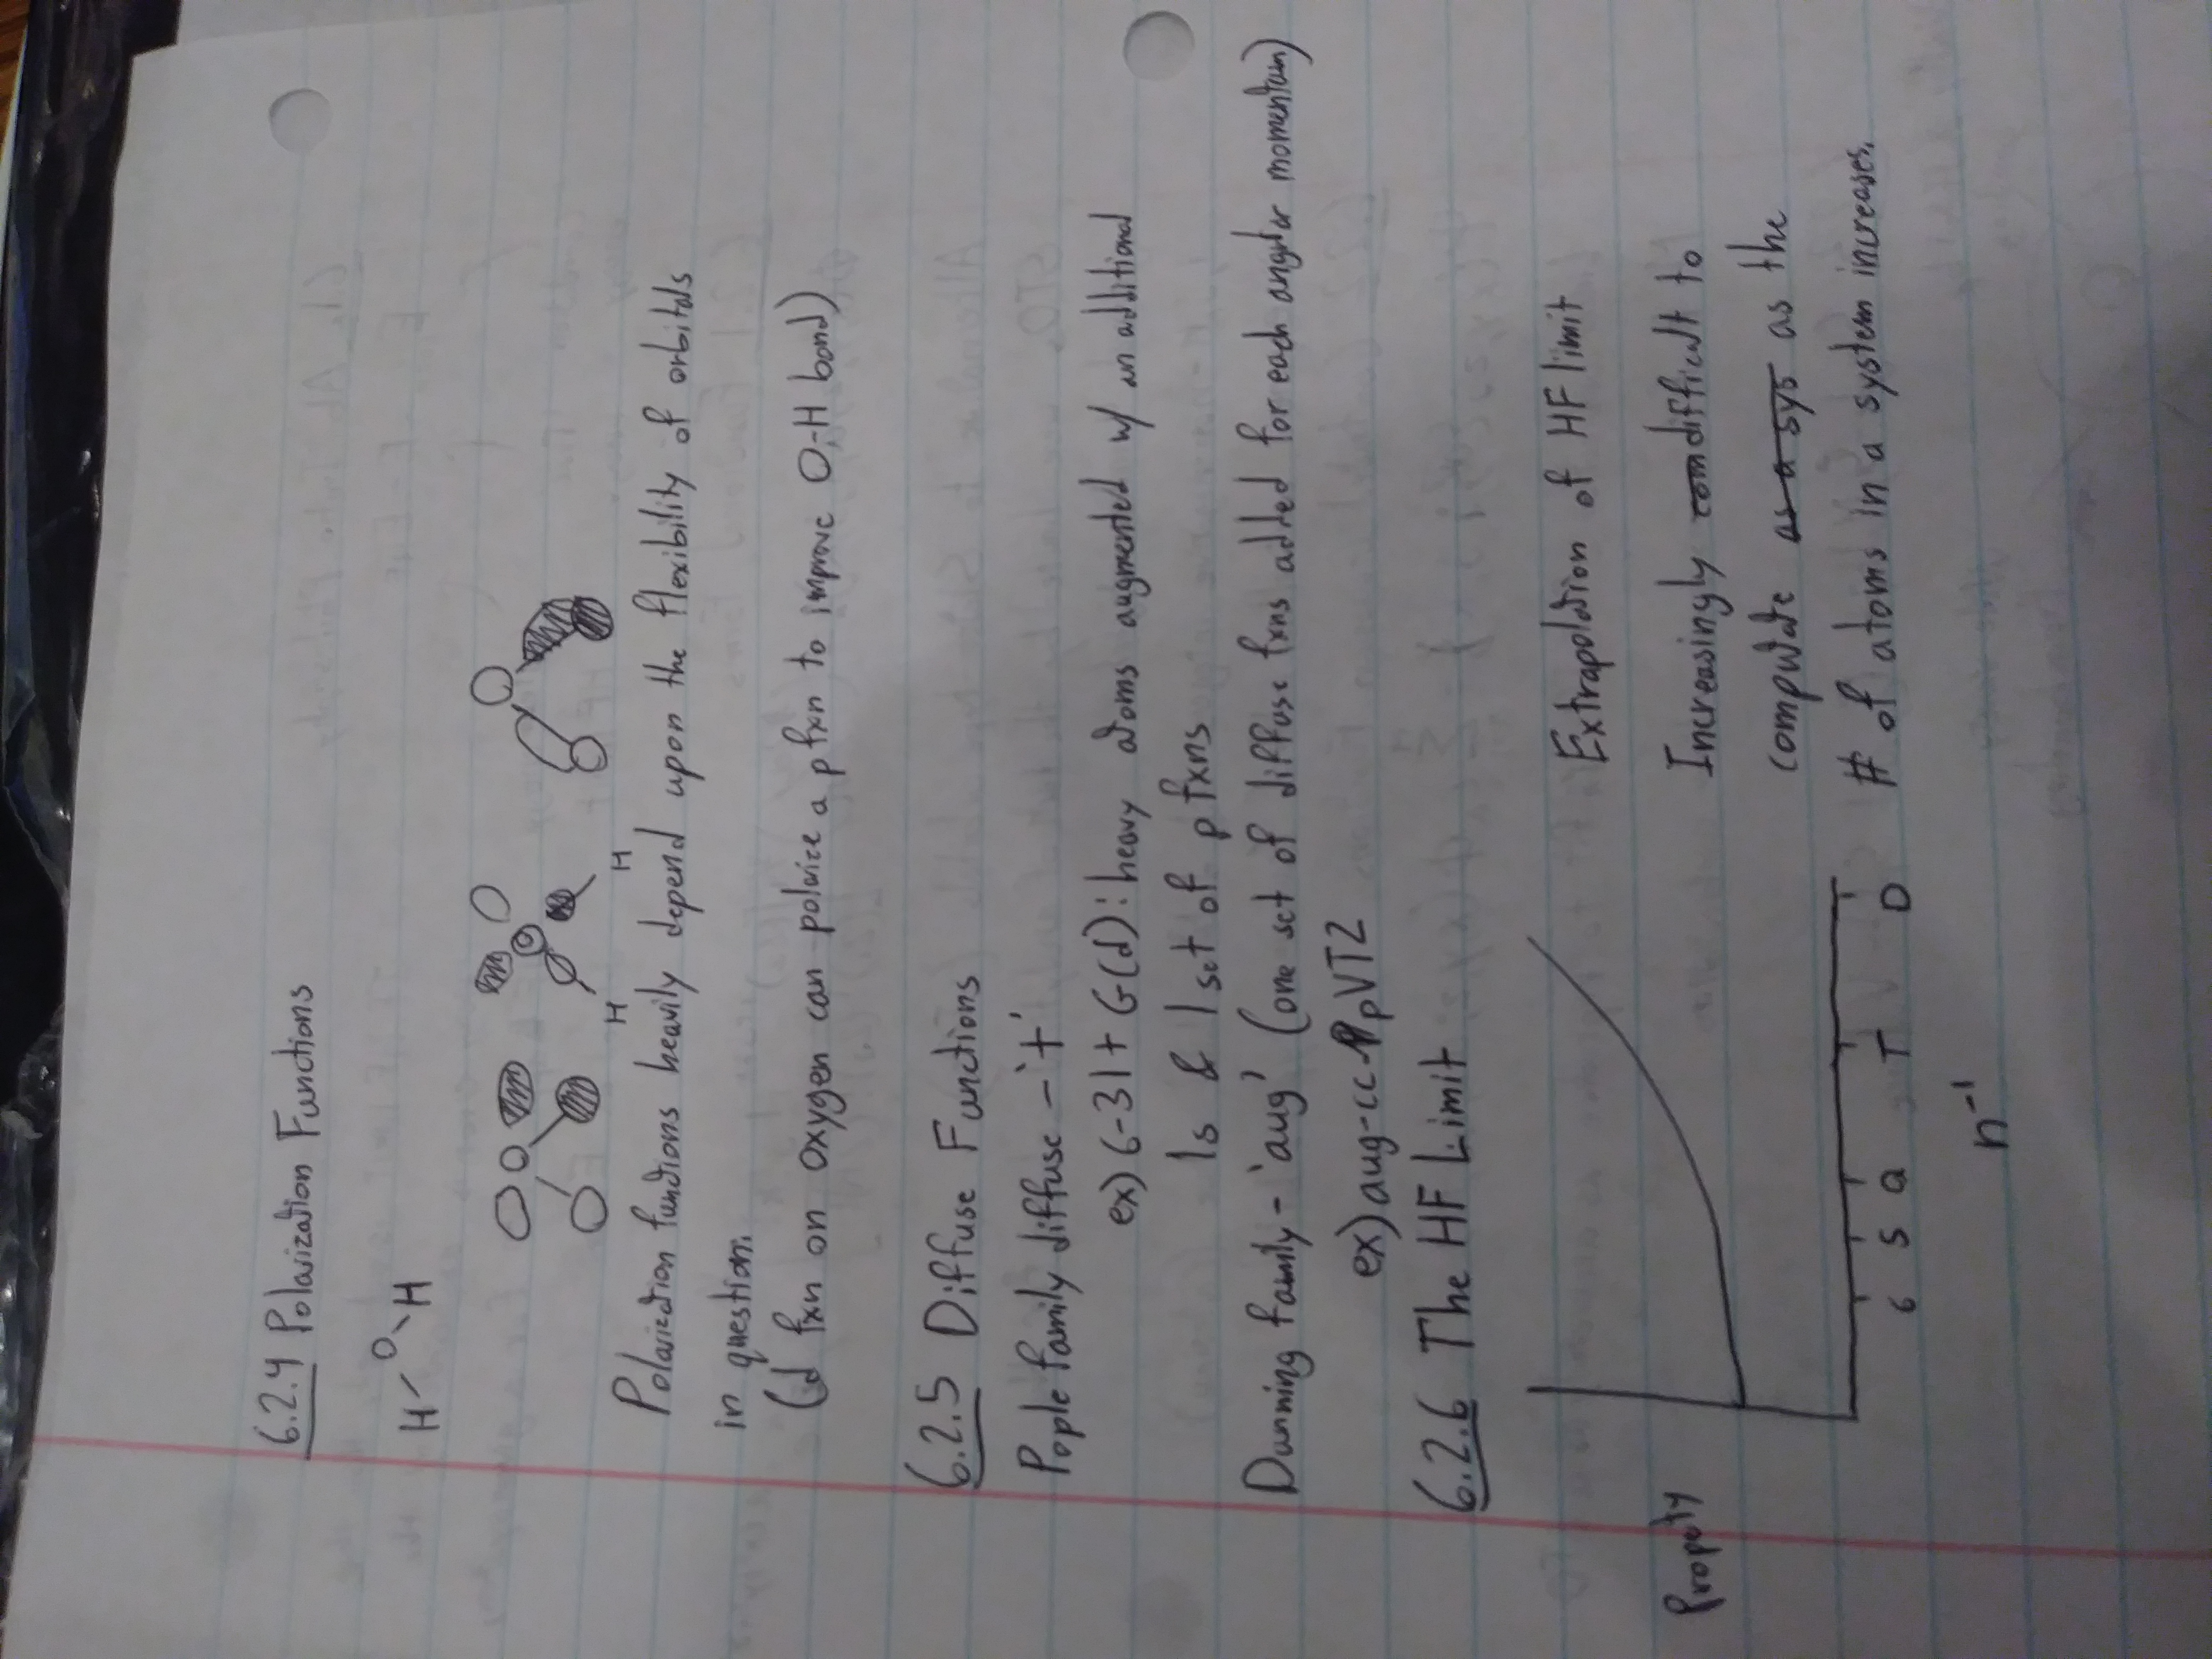 6.2.4 Polarization Functions
H O H
H H
Polarization functions heavily depend upon the flexibility of orbitals
in question.
(d fxn on oxygen can polarize a p fxn to improve O-H bond)
6.2.5 Diffuse Functions
Pople family diffuse - '+'
ex) 6-31+G(d): heavy atoms augmented w/ an additional
1s & 1 set of p fxns
Dunning family - 'aug' (one set of diffuse fxns added for each angular momentum)
ex) aug-cc-pVTZ
6.2.6 The HF Limit
Extrapolation of HF limit
Property
Increasingly com difficult to
computate as a sys as the
# of atoms in a system increases.
6 5 Q T D
n⁻¹